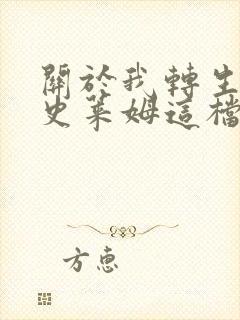 關於我轉生
史萊姆這檔
方惠